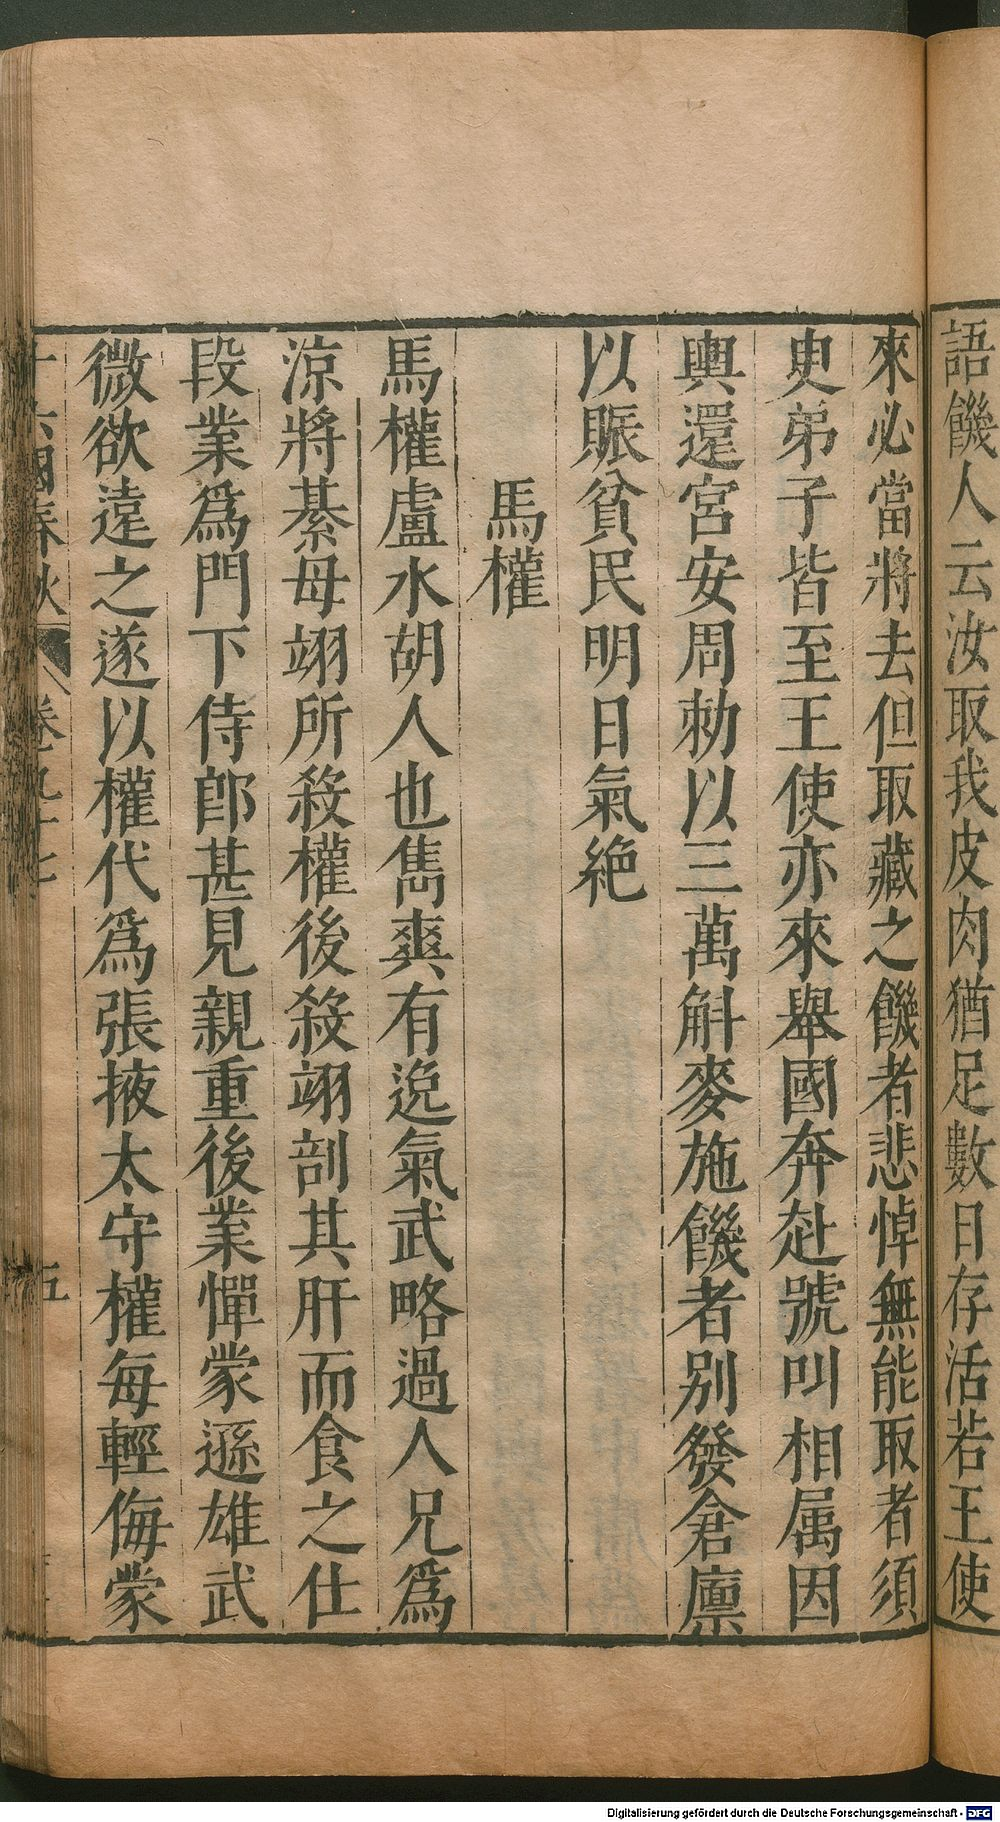 語饑人云汝取我皮肉猶足數日存活若王使
來必當將去但取藏之饑者悲悼無能取者須
臾弟子皆至王使亦來舉國奔赴號叫相属因
輿還宮安周勅以三萬斛麥施饑者别發倉廪
以賑貧民明日氣絶
馬權
馬權盧水胡人也雋爽有逸氣武略過人兄爲
涼將綦母翊所殺權後殺翊剖其肝而食之仕
段業爲門下侍郎甚見親重後業憚蒙遜雄武
微欲遠之遂以權代爲張掖太守權每輕侮蒙
十六國春秋 卷九十七 五
Digitalisierung gefördert durch die Deutsche Forschungsgemeinschaft - DFG